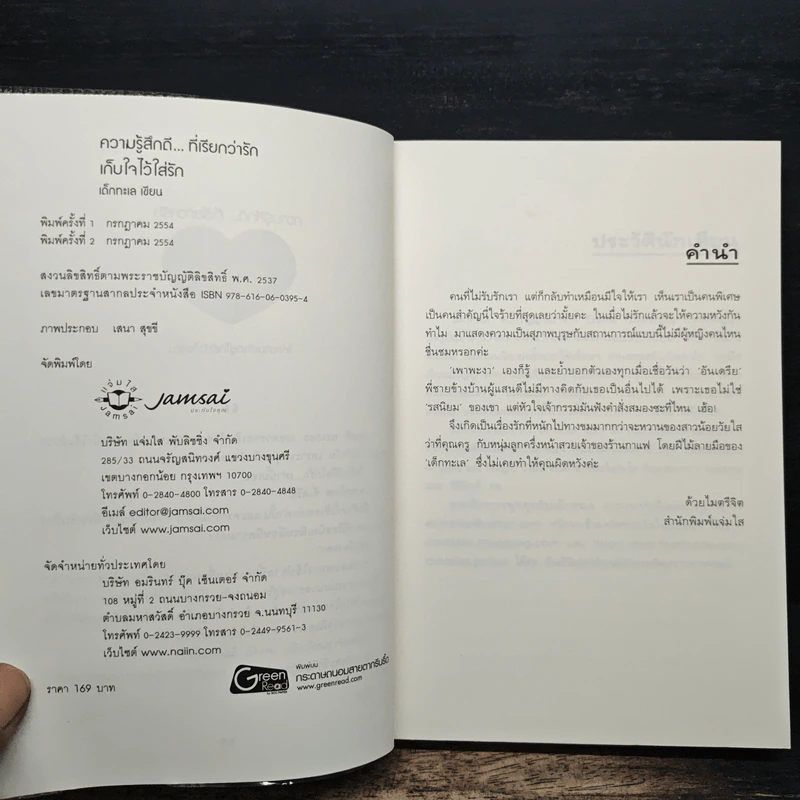 ความรู้สึกดี... ที่เรียกว่ารัก
เก็บใจไว้ใส่รัก
เด็กทะเล เขียน
พิมพ์ครั้งที่ 1 กรกฎาคม 2554
พิมพ์ครั้งที่ 2 กรกฎาคม 2554
สงวนลิขสิทธิ์ตามพระราชบัญญัติลิขสิทธิ์ พ.ศ. 2537
เลขมาตรฐานสากลประจำหนังสือ ISBN 978-616-06-0395-4
ภาพประกอบ เสนา สุขขี
จัดพิมพ์โดย
แจ่มใส
Jamsai
Jamsai
บริษัท แจ่มใส พับลิชชิ่ง จำกัด
285/33 ถนนจรัญสนิทวงศ์ แขวงบางขุนศรี
เขตบางกอกน้อย กรุงเทพฯ 10700
โทรศัพท์ 0-2840-4800 โทรสาร 0-2840-4848
อีเมล์ editor@jamsai.com
เว็บไซต์ www.jamsai.com
จัดจำหน่ายทั่วประเทศโดย
บริษัท อมรินทร์ บุ๊ค เซ็นเตอร์ จำกัด
108 หมู่ที่ 2 ถนนบางกรวย-จงถนอม
ตำบลมหาสวัสดิ์ อำเภอบางกรวย จ.นนทบุรี 11130
โทรศัพท์ 0-2423-9999 โทรสาร 0-2449-9561-3
เว็บไซต์ www.naiin.com
ราคา 169 บาท
Green
Read
พิมพ์บน
กระดาษถนอมสายตากรีนรี้ด
www.greenread.com
คำนำ
คนที่ไม่รับรักเรา แต่ก็กลับทำเหมือนมีใจให้เรา เห็นเราเป็นคนพิเศษ
เป็นคนสำคัญนี่ใจร้ายที่สุดเลยว่ามั้ยคะ ในเมื่อไม่รักแล้วจะให้ความหวังกัน
ทำไม มาแสดงความเป็นสุภาพบุรุษกับสถานการณ์แบบนี้ไม่มีผู้หญิงคนไหน
ชื่นชมหรอกค่ะ
'เพาพะงา' เองก็รู้ และย้ำบอกตัวเองทุกเมื่อเชื่อวันว่า 'อันเดรีย'
พี่ชายข้างบ้านผู้แสนดีไม่มีทางคิดกับเธอเป็นอื่นไปได้ เพราะเธอไม่ใช่
'รสนิยม' ของเขา แต่หัวใจเจ้ากรรมมันฟังคำสั่งสมองซะที่ไหน เฮ้อ!
จึงเกิดเป็นเรื่องรักที่หนักไปทางขมมากกว่าจะหวานของสาวน้อยวัยใส
ว่าที่คุณครู กับหนุ่มลูกครึ่งหน้าสวยเจ้าของร้านกาแฟ โดยฝีไม้ลายมือของ
'เด็กทะเล' ซึ่งไม่เคยทำให้คุณผิดหวังค่ะ
ด้วยไมตรีจิต
สำนักพิมพ์แจ่มใส